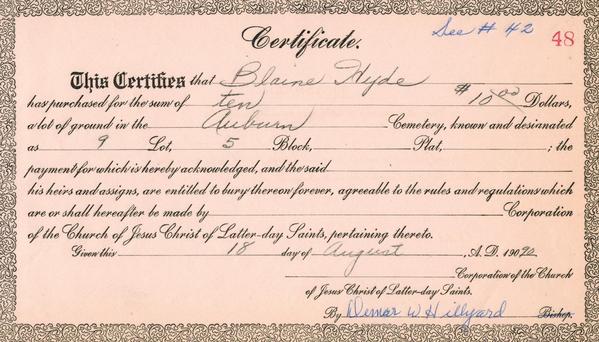 See # 42
48
Certificate.
This Certifies that Blaine Hyde
has purchased for the sum of ten $10.00 Dollars,
a lot of ground in the Auburn Cemetery, known and desianated
as 9 Lot, 5 Block, Plat, ; the
payment for which is hereby acknowledged, and the said
his heirs and assigns, are entitled to bury thereon forever, agreeable to the rules and regulations which
are or shall hereafter be made by Corporation
of the Church of Jesus Christ of Latter-day Saints, pertaining thereto.
Given this 18 day of August , A. D. 190
Corporation of the Church
of Jesus Christ of Latter-day Saints.
By Demar W Hillyard Bishop.